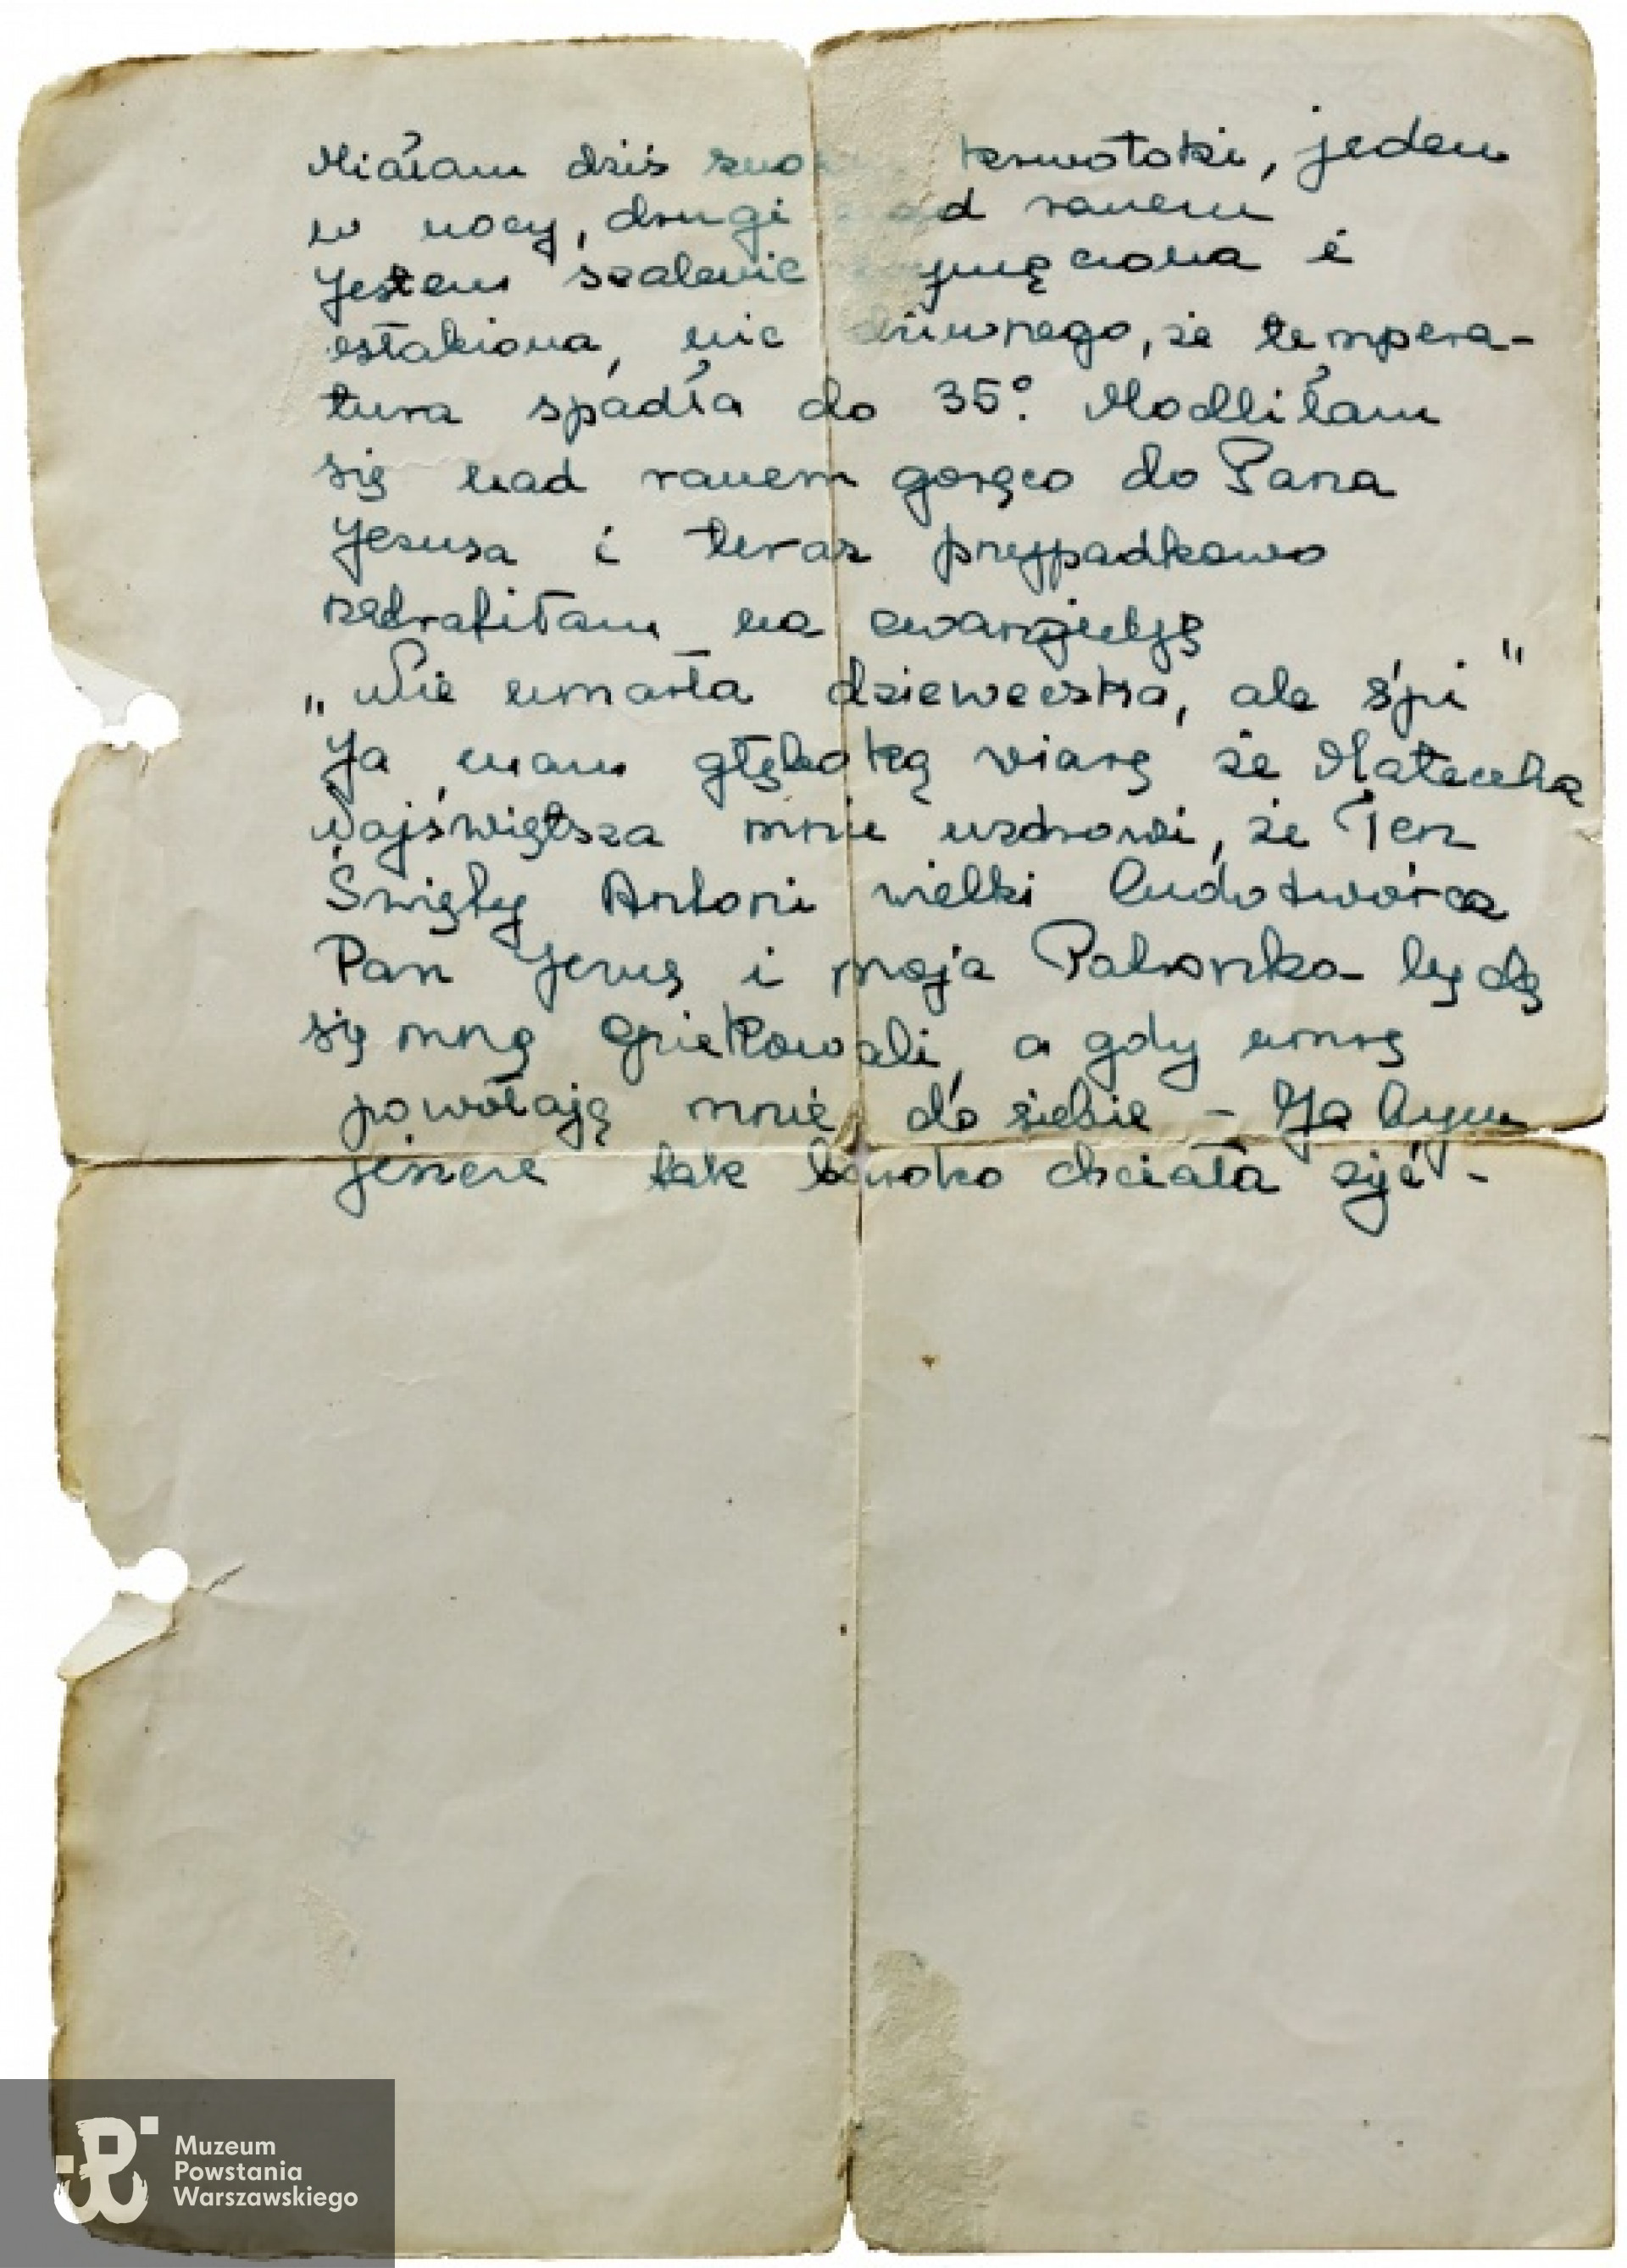 Miałam dziś krwotoki, jeden
w nocy, drugi nad ranem
Jestem szalenie zmęczona i
osłabiona, nic dziwnego, że tempera-
tura spadła do 35°. Modliłam
się nad ranem gorąco do Pana
Jezusa i teraz przypadkowo
natrafiłam na ewangielję
„Nie umarła dzieweczka, ale śpi"
Ja mam głęboką wiarę że Mateczka
Najświętsza mnie uzdrowi, że Ten
Święty Antoni wielki cudotwórca
Pan Jezus i moja Patronka będą
się mną opiekowali, a gdy umrę
powołają mnie do siebie - Ja bym
jeszcze tak bardzo chciała żyć -
Muzeum
Powstania
Warszawskiego